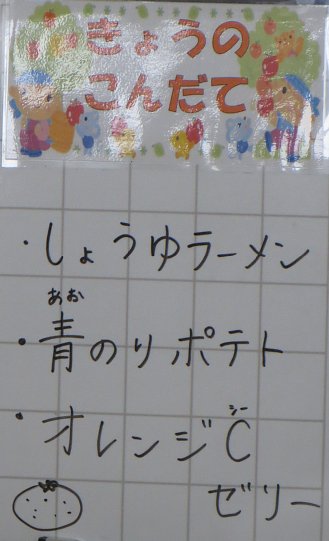 きょうの
こんだて
・しょうゆラーメン
あお
・青のりポテト
シー
・オレンジC
ゼリー